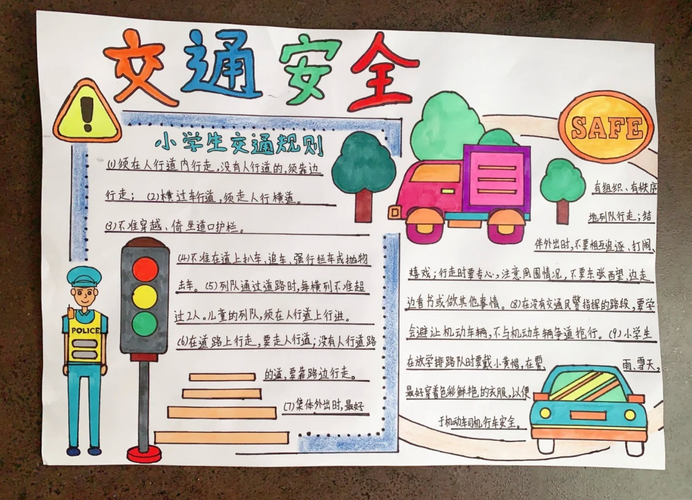 交通安全
小学生交通规则
(1)须在人行道内行走,没有人行道的,须靠边
行走; (2)横过车行道,须走人行横道。
(3)不准穿越、倚坐道口护栏。
(4)不准在道上扒车、追车、强行拦车或抛物
击车。(5)列队通过道路时,每横列不准超
过2人。儿童的列队,须在人行道上行进。
(6)在道路上行走,要走人行道;没有人行道路
的道,要靠路边行走。
(7)集体外出时,最好
POLICE
SAFE
有组织、有秩序
地列队行走;结
伴外出时,不要相互追逐、打闹、
嬉戏;行走时要专心,注意周围情况,不要东张西望、边走
边看书或做其他事情。(8)在没有交通民警指挥的路段,要学
会避让机动车辆,不与机动车辆争道抢行。(9)小学生
在放学排路队时要戴小黄帽,在雾、
雨、雪天,
最好穿着色彩鲜艳的衣服,以便
于机动车司机行车安全。